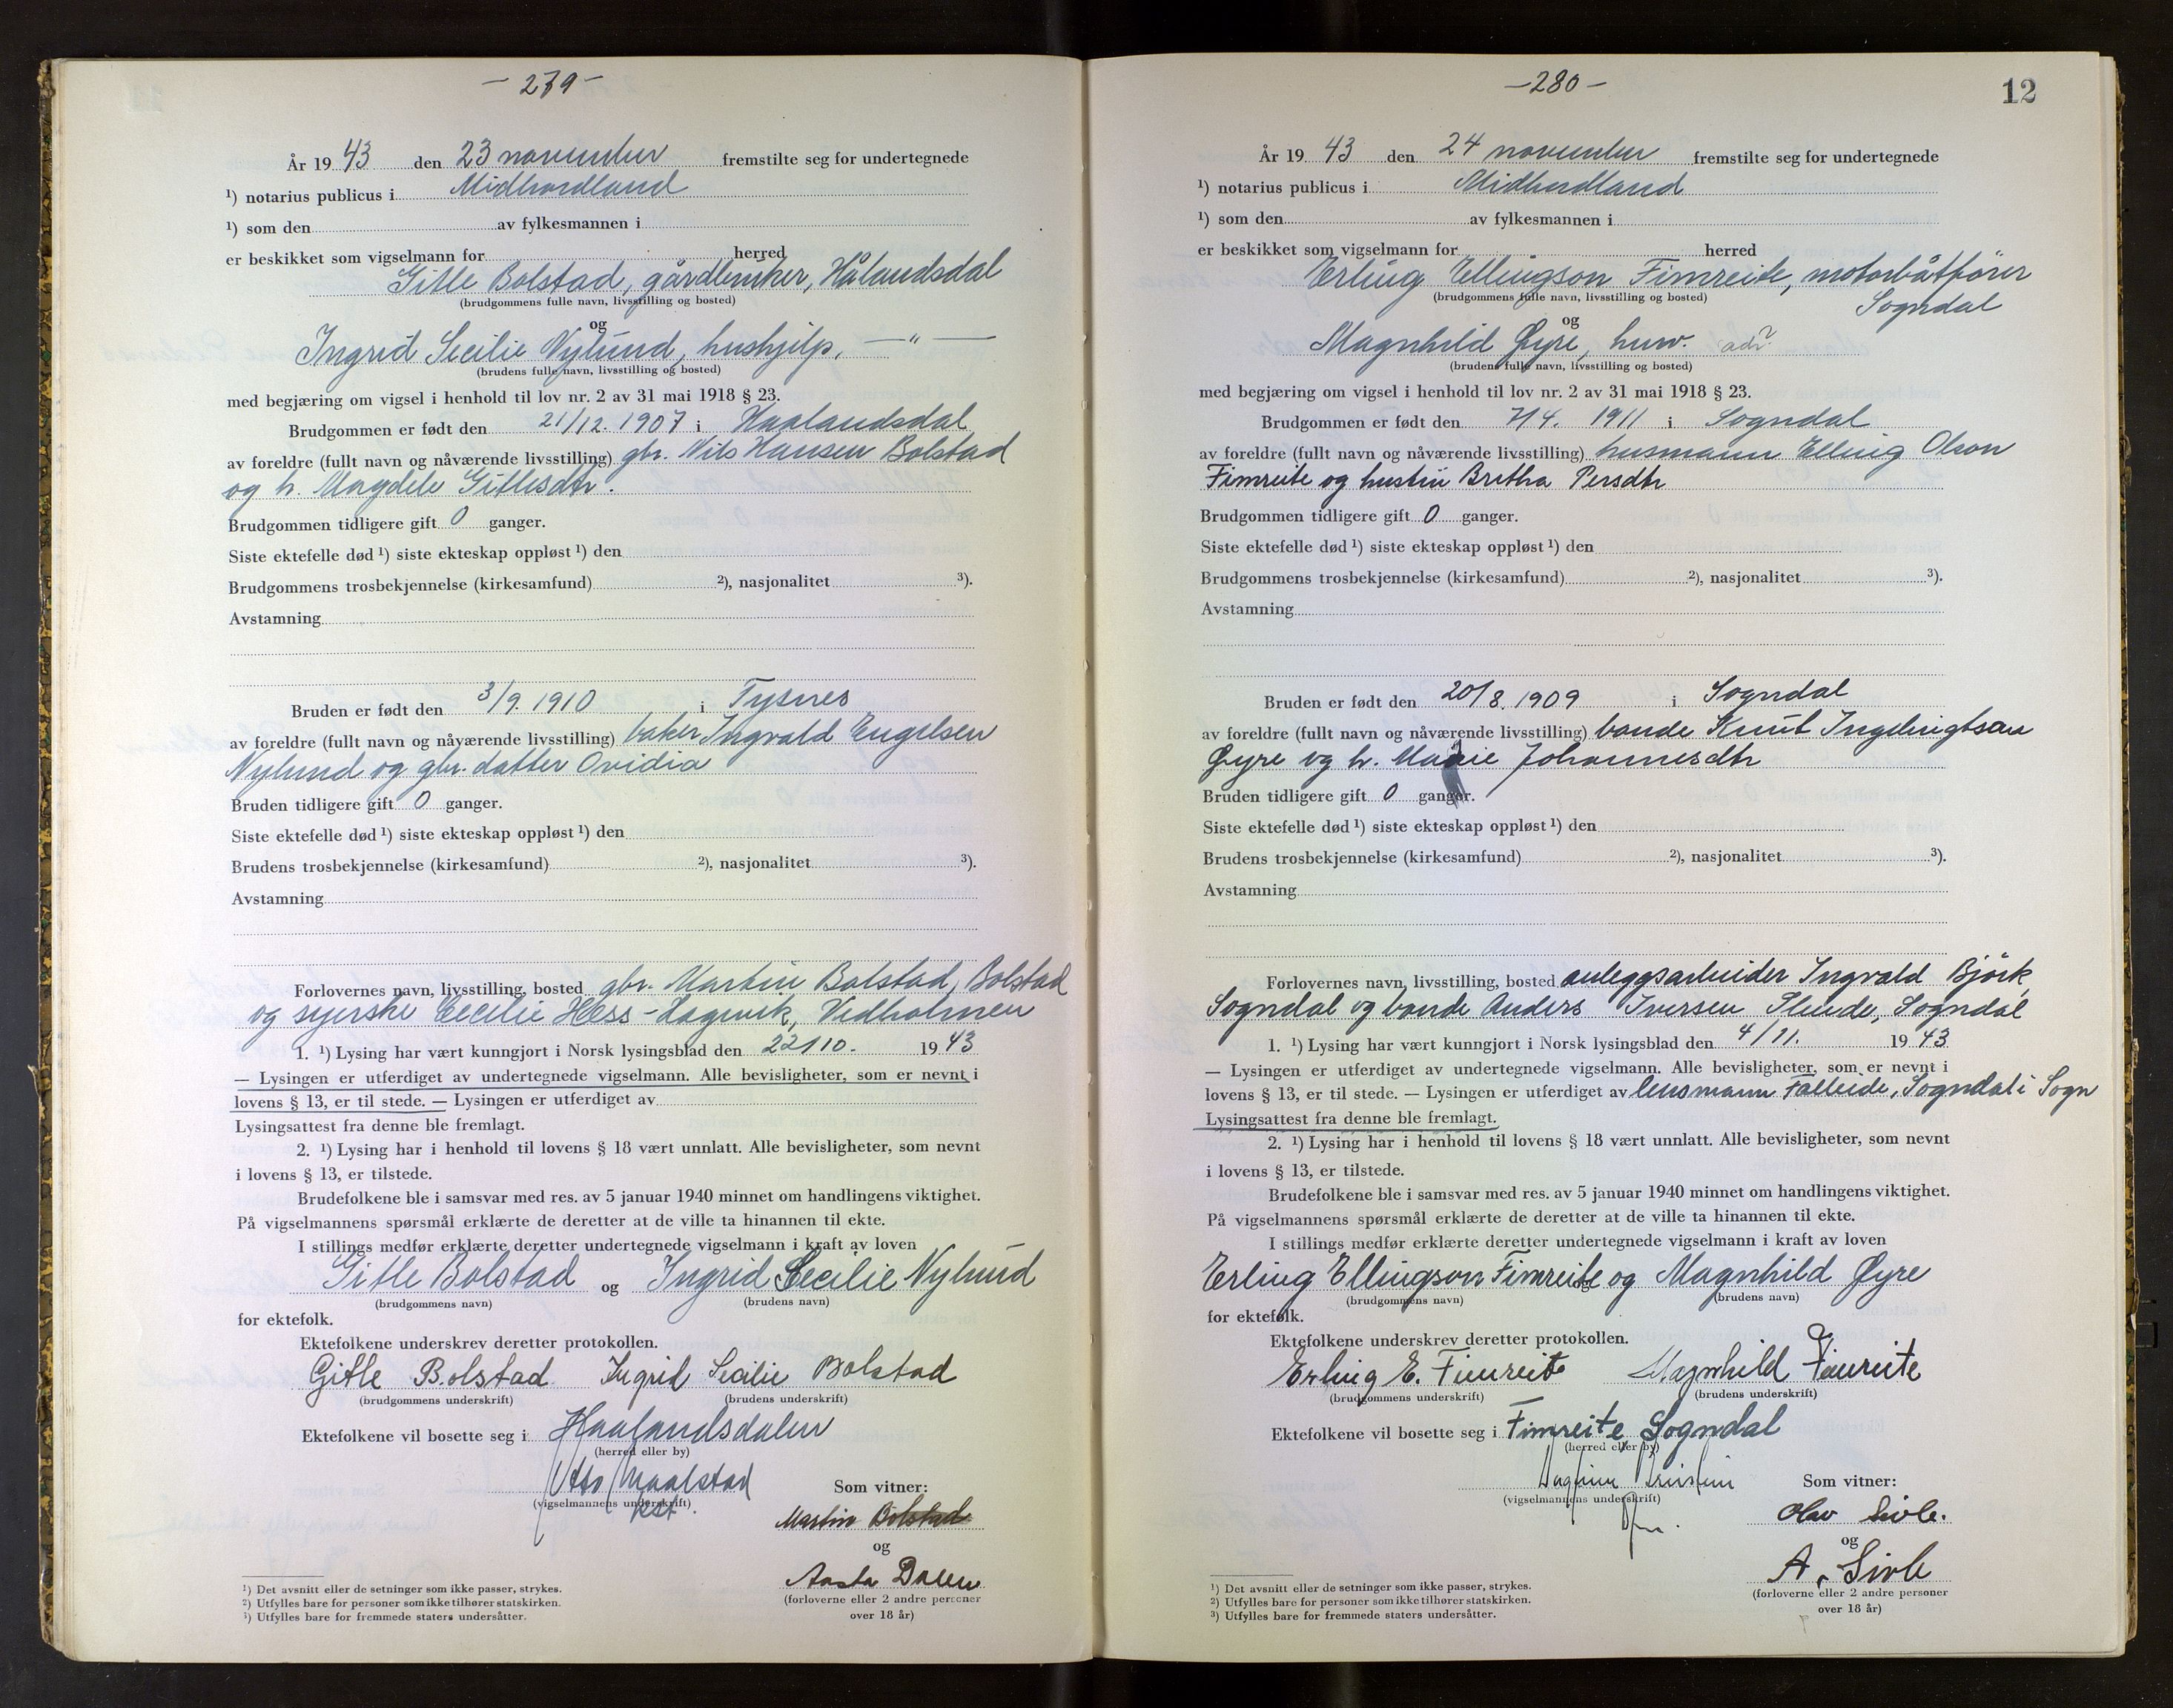 - 279 -
År 1943 den 23 november fremstilte seg for undertegnede
¹) notarius publicus i Midhordland
¹) som den av fylkesmannen i
er beskikket som vigselmann for herred
Gitle Bolstad, gårdbruker, Hålandsdal
(brudgommens fulle navn, livsstilling og bosted)
og
Ingrid Secilie Nylund, hushjelp, — " —
(brudens fulle navn, livsstilling og bosted)
med begjæring om vigsel i henhold til lov nr. 2 av 31 mai 1918 § 23.
Brudgommen er født den 21/12. 1907 i Haalandsdal
av foreldre (fullt navn og nåværende livsstilling) gbr. Nils Hansen Bolstad
og h. Magdele Gitlesdtr.
Brudgommen tidligere gift 0 ganger.
Siste ektefelle død ¹) siste ekteskap oppløst ¹) den
Brudgommens trosbekjennelse (kirkesamfund) ²), nasjonalitet ³).
Avstamning
Bruden er født den 3/9. 1910 i Tysnes
av foreldre (fullt navn og nåværende livsstilling) baker Ingvald Engelsen
Nylund og gbr. datter Ovidia
Bruden tidligere gift 0 ganger.
Siste ektefelle død ¹) siste ekteskap oppløst ¹) den
Brudens trosbekjennelse (kirkesamfund) ²), nasjonalitet ³).
Avstamning
Forlovernes navn, livsstilling, bosted gbr. Martin Bolstad, Bolstad
og syerske Cecilie Hess-Hagevik, Vedholmen
1. ¹) Lysing har vært kunngjort i Norsk lysingsblad den 22/10. 1943
— Lysingen er utferdiget av undertegnede vigselmann. Alle bevisligheter, som er nevnt i
lovens § 13, er til stede. — Lysingen er utferdiget av
Lysingsattest fra denne ble fremlagt.
2. ¹) Lysing har i henhold til lovens § 18 vært unnlatt. Alle bevisligheter, som nevnt
i lovens § 13, er tilstede.
Brudefolkene ble i samsvar med res. av 5 januar 1940 minnet om handlingens viktighet.
På vigselmannens spørsmål erklærte de deretter at de ville ta hinannen til ekte.
I stillings medfør erklærte deretter undertegnede vigselmann i kraft av loven
Gitle Bolstad og Ingrid Secilie Nylund
(brudgommens navn) (brudens navn)
for ektefolk.
Ektefolkene underskrev deretter protokollen.
Gitle Bolstad. Ingrid Secilie Bolstad
(brudgommens underskrift) (brudens underskrift)
Ektefolkene vil bosette seg i Haalandsdalen
(herred eller by)
Otto Maalstad
(vigselmannens underskrift)
kst.
Som vitner:
Martin Bolstad
og
Aasta Dalen
(forloverne eller 2 andre personer
over 18 år)
¹) Det avsnitt eller de setninger som ikke passer, strykes.
²) Utfylles bare for personer som ikke tilhører statskirken.
³) Utfylles bare for fremmede staters undersåtter.
- 280 -
12
År 1943 den 24 november fremstilte seg for undertegnede
¹) notarius publicus i Midhordland
¹) som den av fylkesmannen i
er beskikket som vigselmann for herred
Erling Ellingson Fimreite, motorbåtfører
(brudgommens fulle navn, livsstilling og bosted)
Sogndal
og
Magnhild Øyre, husv. adr
(brudens fulle navn, livsstilling og bosted)
med begjæring om vigsel i henhold til lov nr. 2 av 31 mai 1918 § 23.
Brudgommen er født den 7/4. 1911 i Sogndal
av foreldre (fullt navn og nåværende livsstilling) husmann Elling Olson
Fimreite og hustru Britha Persdtr
Brudgommen tidligere gift 0 ganger.
Siste ektefelle død ¹) siste ekteskap oppløst ¹) den
Brudgommens trosbekjennelse (kirkesamfund) ²), nasjonalitet ³).
Avstamning
Bruden er født den 20/8. 1909 i Sogndal
av foreldre (fullt navn og nåværende livsstilling) bonde Knut Ingebrigtsøn
Øyre og h. Marie Johannesdtr
Bruden tidligere gift 0 ganger.
Siste ektefelle død ¹) siste ekteskap oppløst ¹) den
Brudens trosbekjennelse (kirkesamfund) ²), nasjonalitet ³).
Avstamning
Forlovernes navn, livsstilling, bosted anleggsarbeider Ingvald Björk,
Sogndal og bonde Anders Iversen Stende, Sogndal
1. ¹) Lysing har vært kunngjort i Norsk lysingsblad den 4/11. 1943
— Lysingen er utferdiget av undertegnede vigselmann. Alle bevisligheter, som er nevnt i
lovens § 13, er til stede. — Lysingen er utferdiget av lensmann Falleide, Sogndal i Sogn
Lysingsattest fra denne ble fremlagt.
2. ¹) Lysing har i henhold til lovens § 18 vært unnlatt. Alle bevisligheter, som nevnt
i lovens § 13, er tilstede.
Brudefolkene ble i samsvar med res. av 5 januar 1940 minnet om handlingens viktighet.
På vigselmannens spørsmål erklærte de deretter at de ville ta hinannen til ekte.
I stillings medfør erklærte deretter undertegnede vigselmann i kraft av loven
Erling Ellingson Fimreite og Magnhild Øyre
(brudgommens navn) (brudens navn)
for ektefolk.
Ektefolkene underskrev deretter protokollen.
Erling E. Fimreite Magnhild Fimreite
(brudgommens underskrift) (brudens underskrift)
Ektefolkene vil bosette seg i Fimreite, Sogndal
(herred eller by)
(vigselmannens underskrift)
Som vitner:
Olav Sivle.
og
A. Sivle
(forloverne eller 2 andre personer
over 18 år)
¹) Det avsnitt eller de setninger som ikke passer, strykes.
²) Utfylles bare for personer som ikke tilhører statskirken.
³) Utfylles bare for fremmede staters undersåtter.